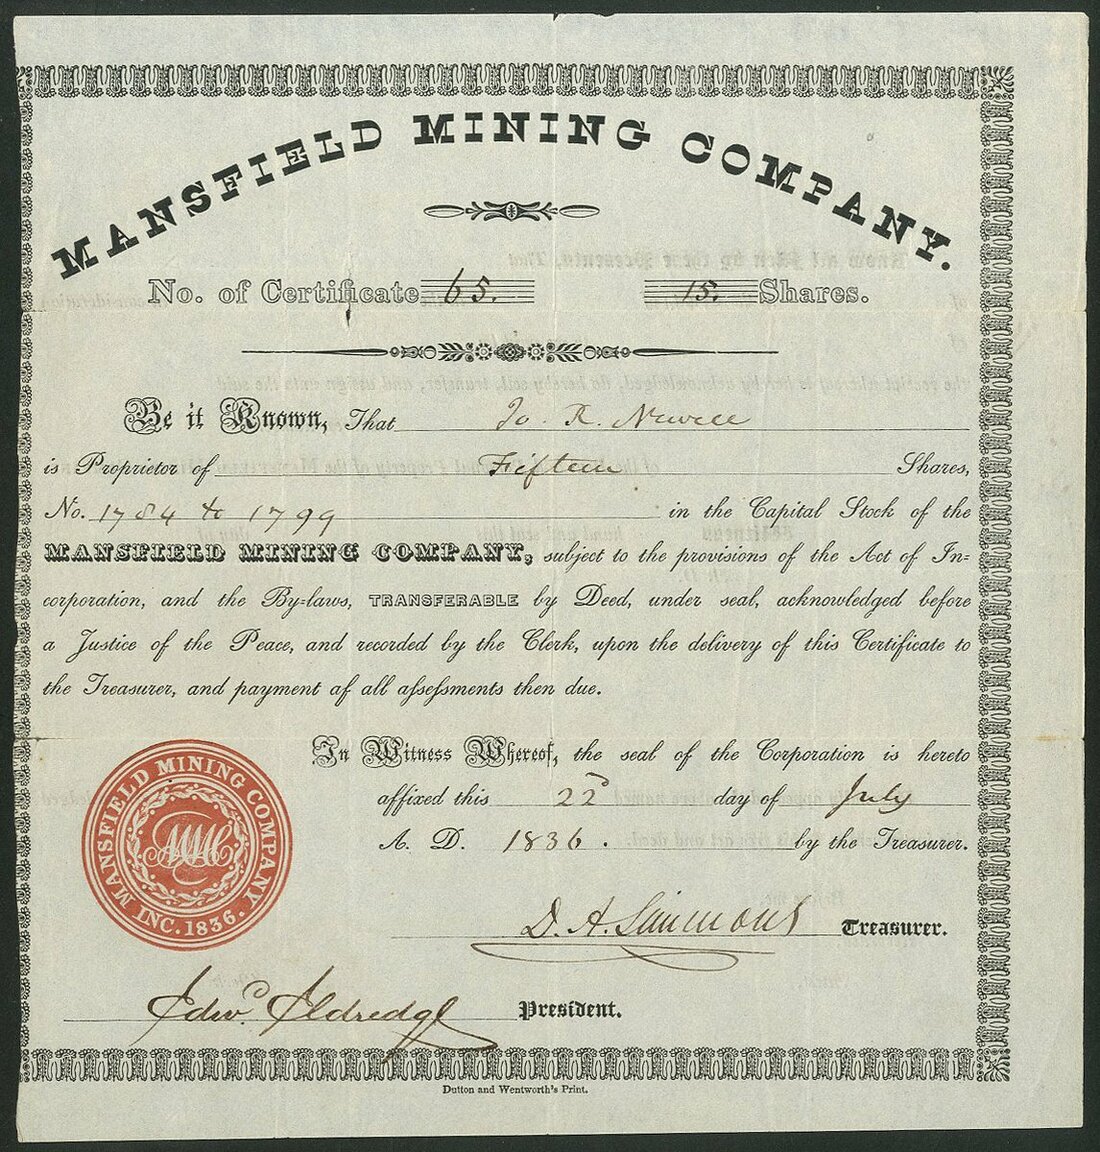 MANSFIELD MINING COMPANY.
No. of Certificate 65. 15. Shares.
Be it Known, That Jo. R. Newell
is Proprietor of Fifteen Shares,
No. 1784 to 1799 in the Capital Stock of the
MANSFIELD MINING COMPANY, subject to the provisions of the Act of In-
corporation, and the By-laws, TRANSFERABLE by Deed, under seal, acknowledged before
a Justice of the Peace, and recorded by the Clerk, upon the delivery of this Certificate to
the Treasurer, and payment af all assessments then due.
In Witness Whereof, the seal of the Corporation is hereto
affixed this 22d day of July
A. D. 1836. by the Treasurer.
MANSFIELD MINING COMPANY
INC. 1836.
D. A. Simmons Treasurer.
Edwd. Eldredge President.
Dutton and Wentworth's Print.